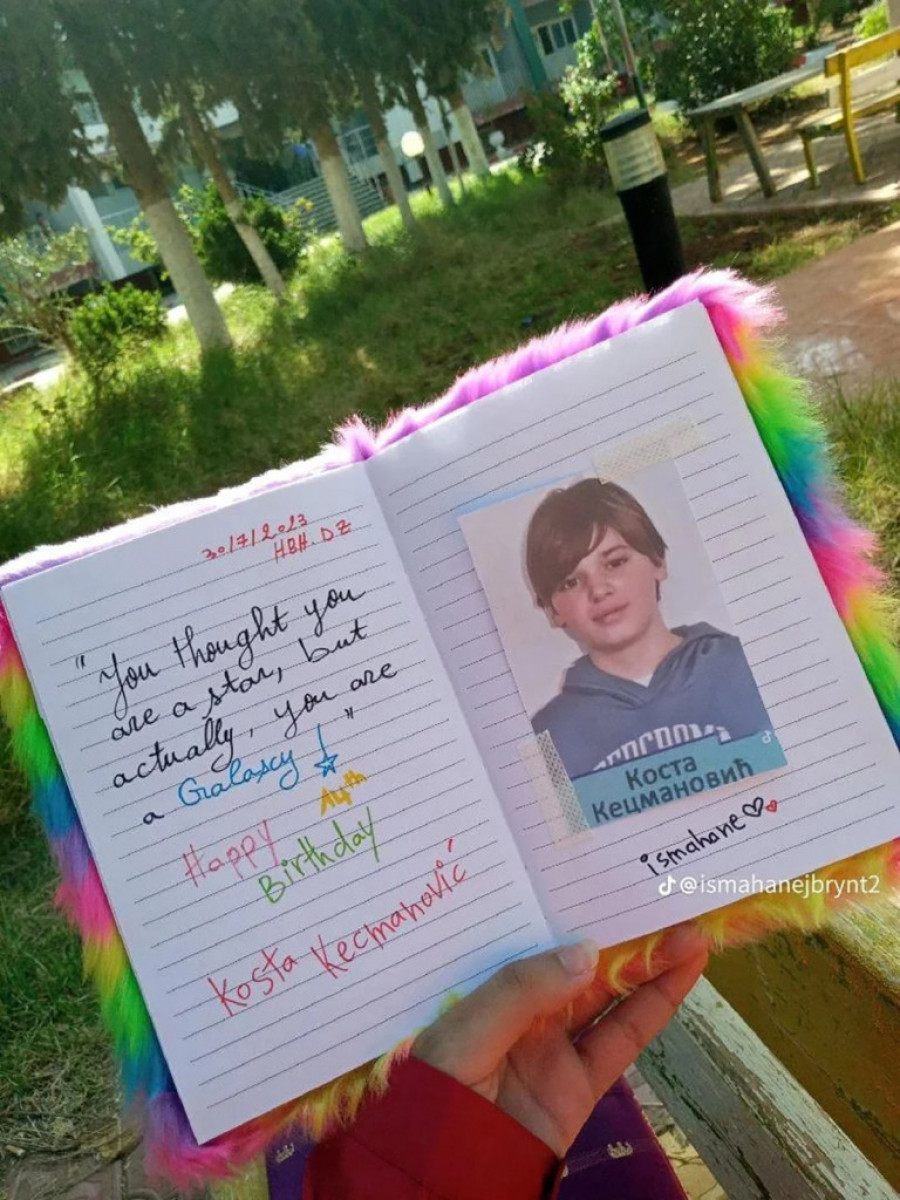 30/7/2023
HBH. DZ
"You thought you
are a star, but
actually, you are
a Galaxcy!"
Happy 14th
Birthday
Kosta Kecmanović
Коста
Кецмановић
ismahane
@ismahanejbrynt2